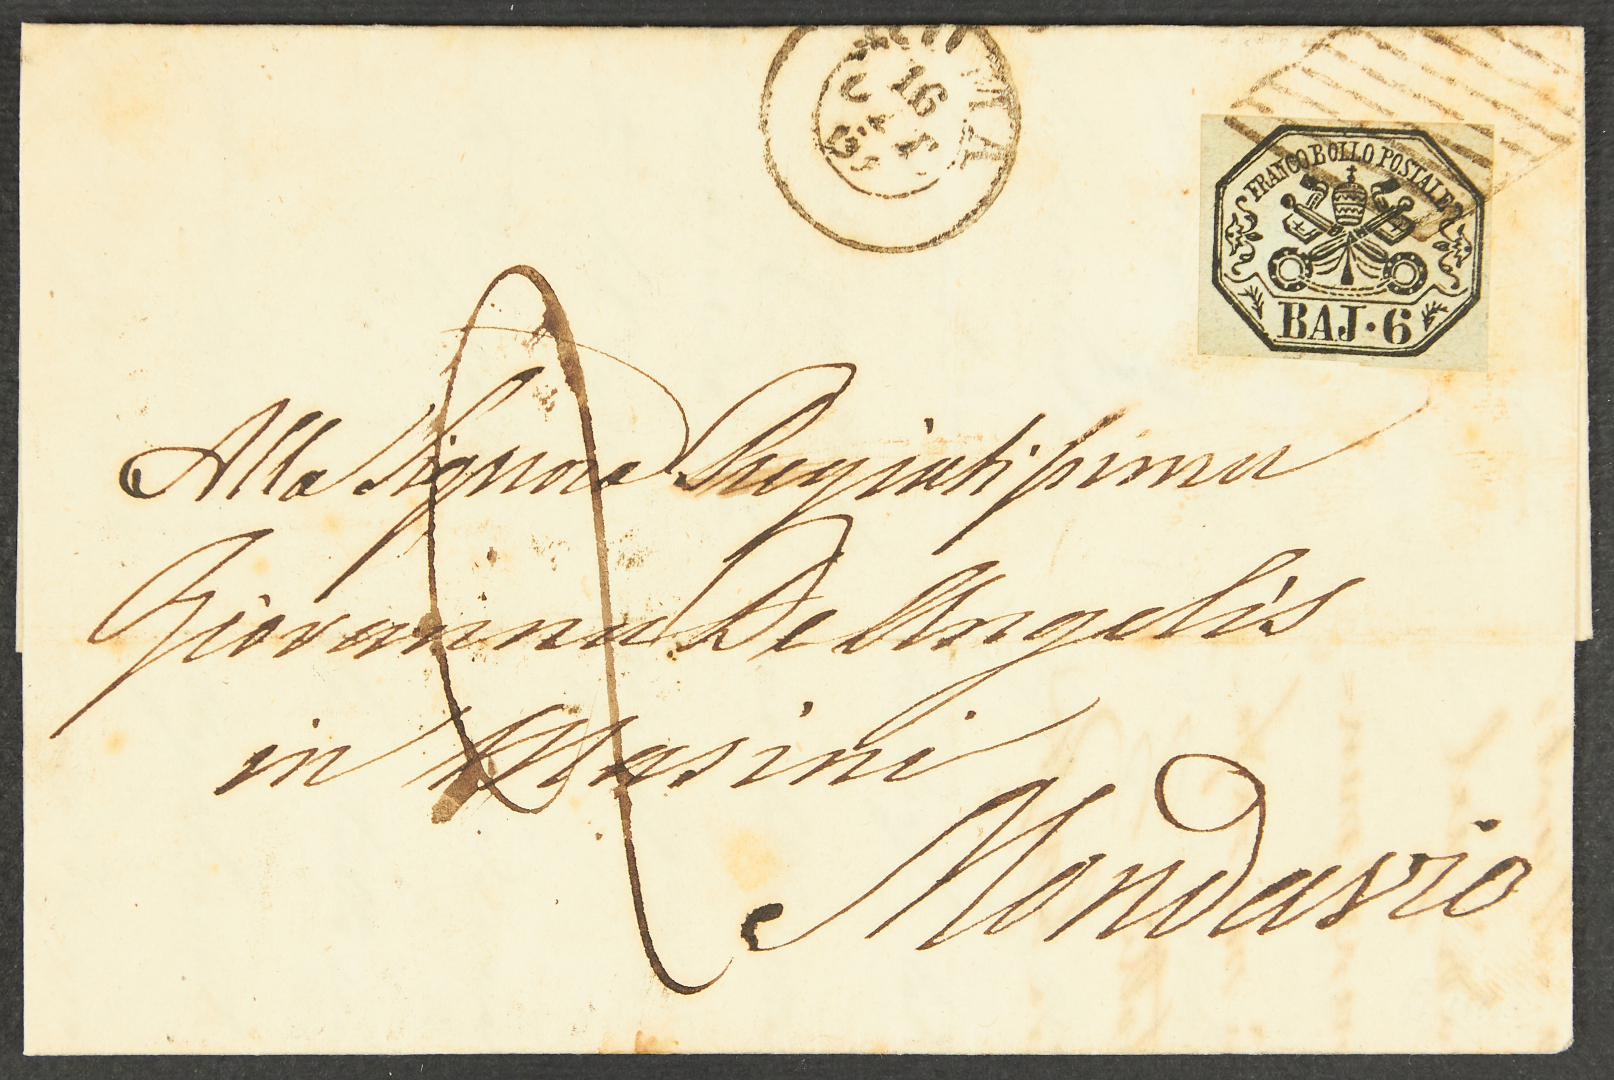 ROMA
16
FRANCO BOLLO POSTALE
BAJ·6
Alla Signora Pregiatissima
Giovanna De Angelis
in Masini
Mondavio